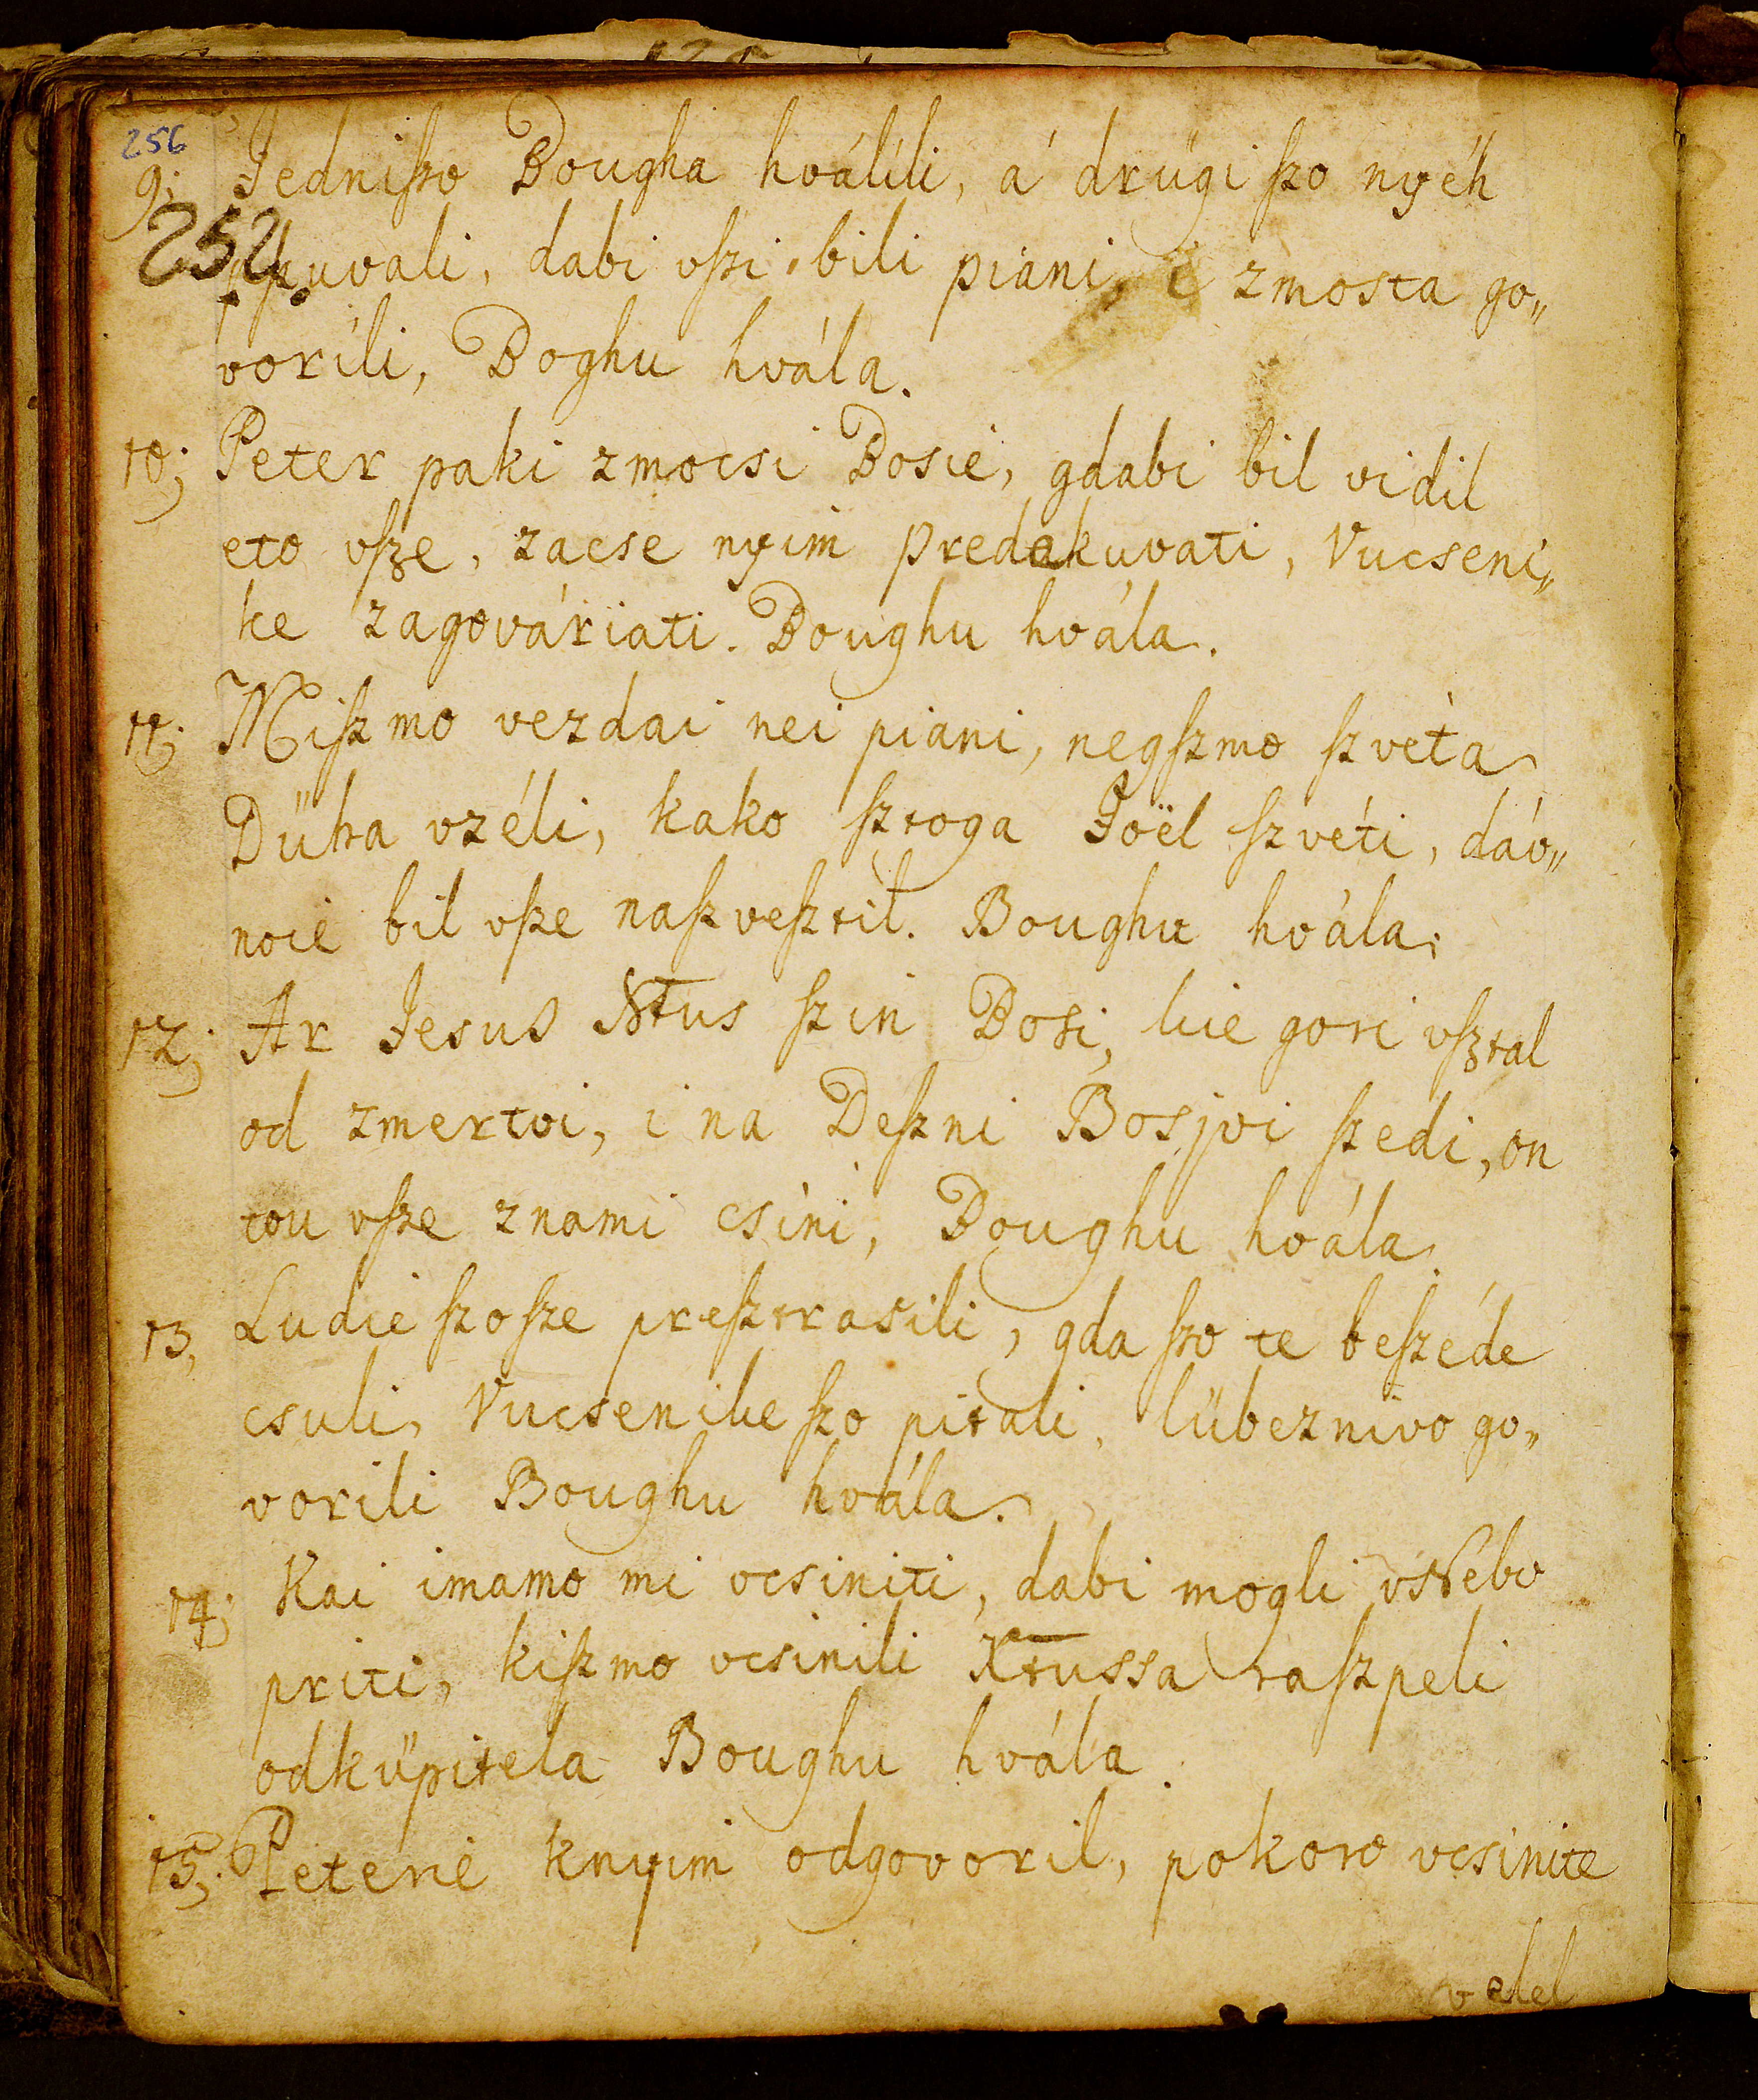 256
9; Jedniſzo Bougha hválili, á drügi ſzo nyéh
252
pſzuvali, dabi vſzi bili piani, i zmosta go„
vorili, Boghu hvála.
10; Peter paki zmocsi Bosié, gdabi bil vidil
eto vſze, zacse nyim predakuvati, Vucseni„
ke zagováriati. Boughu hvála.
11; Miſzmo vezdai nei piani, negſzmo ſzvéta
Dűha vzéli, kako ſztoga Joël ſzvéti, dáv„
noié bil vſze naſzveſztil. Boughu hvála;
12; Ar Jesus Xt̅us ſzin Bosi, kie gori vſztal
od zmertvi, i na Deſzni Bosjvi ſzedi, on
tou vſze znami csini, Boughu hvála.
13, Ludie ſzoſze preſztrasili, gda ſzo te beſzéde
csuli, Vucsenike ſzo pitali, lübeznivo go„
vorili Boughu hvála.
14; Kai imamo mi vcsiniti, dabi mogli vNébo
priti, kiſzmo vcsinili Xt̅ussa raſzpeli
odküpitela Boughu hvála.
15; Peterié knyim odgovoril, pokoro vcsinite
vdel